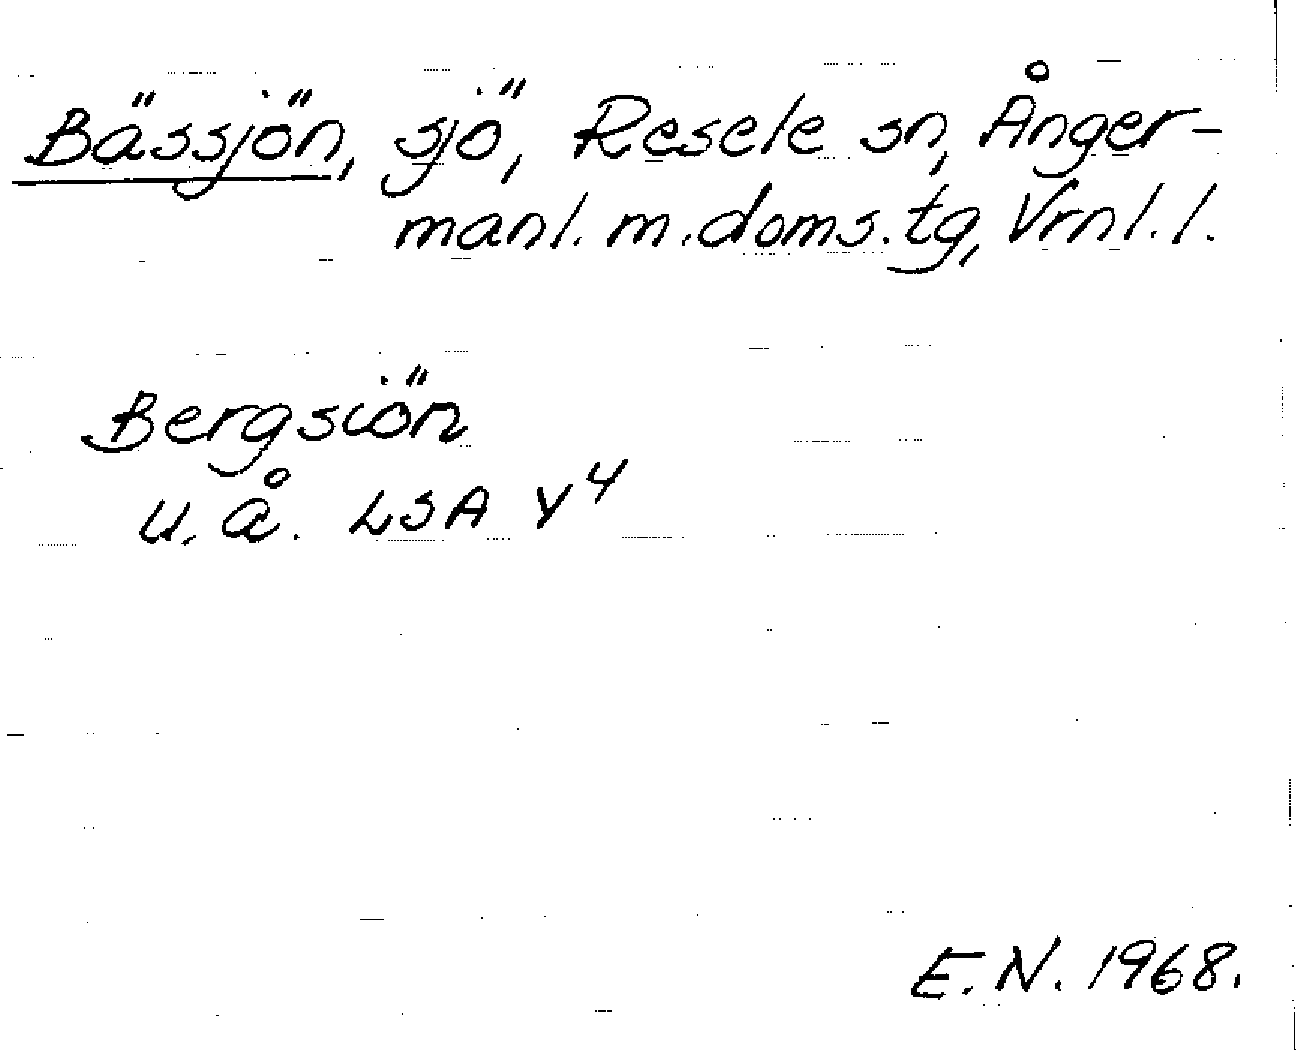 Bässjön, sjö, Resele sn, Ånger-
manl. m. doms. tg, Vrnl. l.
Bergsiön
U. å. LSA Y4
E. N. 1968.